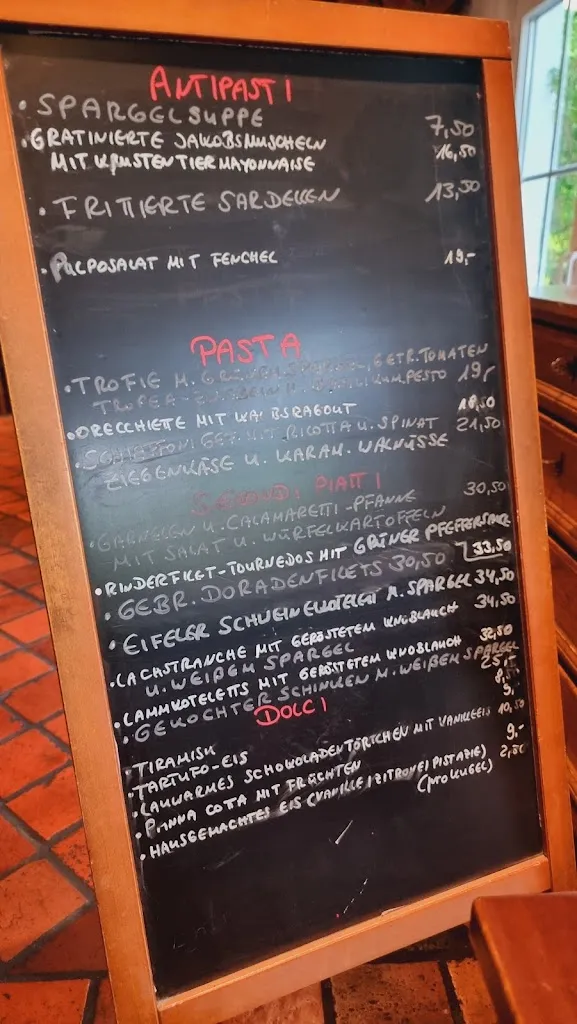 ANTIPASTI
• SPARGELSUPPE 7,50
• GRATINIERTE JAKOBSMUSCHELN 16,50
MIT KRUSTENTIERMAYONNAISE
• FRITIERTE SARDELLEN 13,50
• PULPOSALAT MIT FENCHEL 19,-
PASTA
• TROFIE M. GETR. TOMATEN
TROPEA-ZWIEBELN U. PESTO 19,-
• ORECCHIETTE MIT KALBSRAGOUT 18,50
GEF. MIT RICOTTA U. SPINAT 21,50
ZIEGENKÄSE U. KARAM. WALNÜSSE
SECONDI PIATTI
• GARNELEN U. CALAMARETTI-PFANNE 30,50
MIT SALAT U. WÜRFELKARTOFFELN
• RINDERFILET-TOURNEDOS MIT GRÜNER PFEFFERSAUCE 33,50
• GEBR. DORADENFILETS 30,50
• EIFELER SCHWEINEKOTELETT M. SPARGEL 34,50
• LACHSTRANCHE MIT GERÖSTETEM KNOBLAUCH 34,50
U. WEIßEM SPARGEL
• LAMMKOTELETTS MIT GERÖSTETEM KNOBLAUCH 32,50
• GEKOCHTER SCHINKEN M. WEIßEM SPARGEL 25,-
DOLCI
• TIRAMISU 8,50
• TARTUFO-EIS 9,-
• LAUWARMES SCHOKOLADENTÖRTCHEN MIT VANILLEEIS 10,50
• PANNA COTA MIT FRÜCHTEN 9,-
• HAUSGEMACHTES EIS (VANILLE/ZITRONE/PISTAZIE) 2,50
(PRO KUGEL)